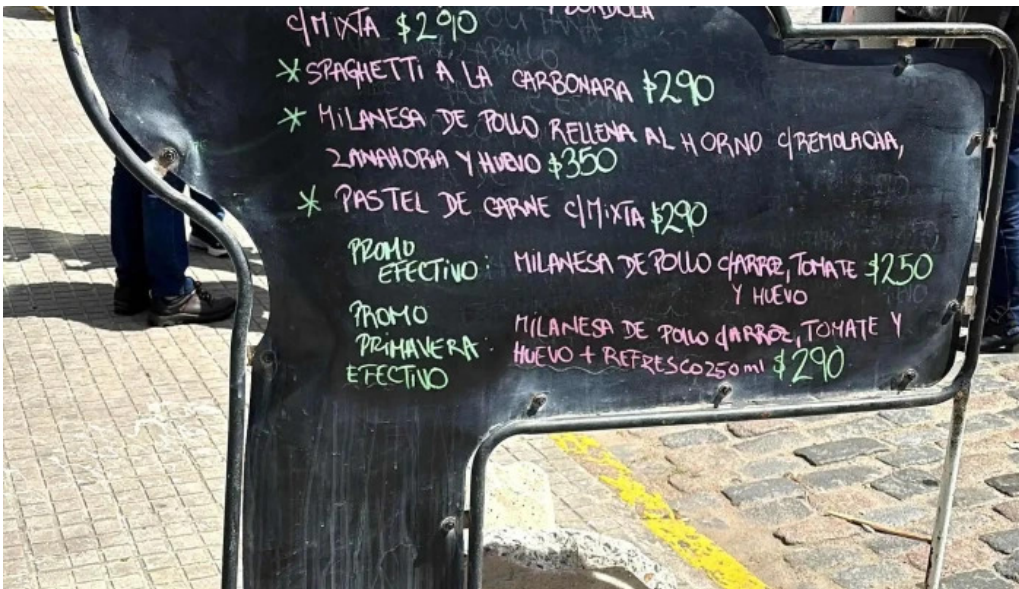 C/MIXTA $290
* SPAGHETTI A LA CARBONARA $290
* MILANESA DE POLLO RELLENA AL HORNO C/REMOLACHA,
ZANAHORIA Y HUEVO $350
* PASTEL DE CARNE C/MIXTA $290
PROMO
EFECTIVO: MILANESA DE POLLO C/ARROZ, TOMATE $250
Y HUEVO
PROMO
PRIMAVERA: MILANESA DE POLLO C/ARROZ, TOMATE Y
EFECTIVO HUEVO + REFRESCO 250 ml $290